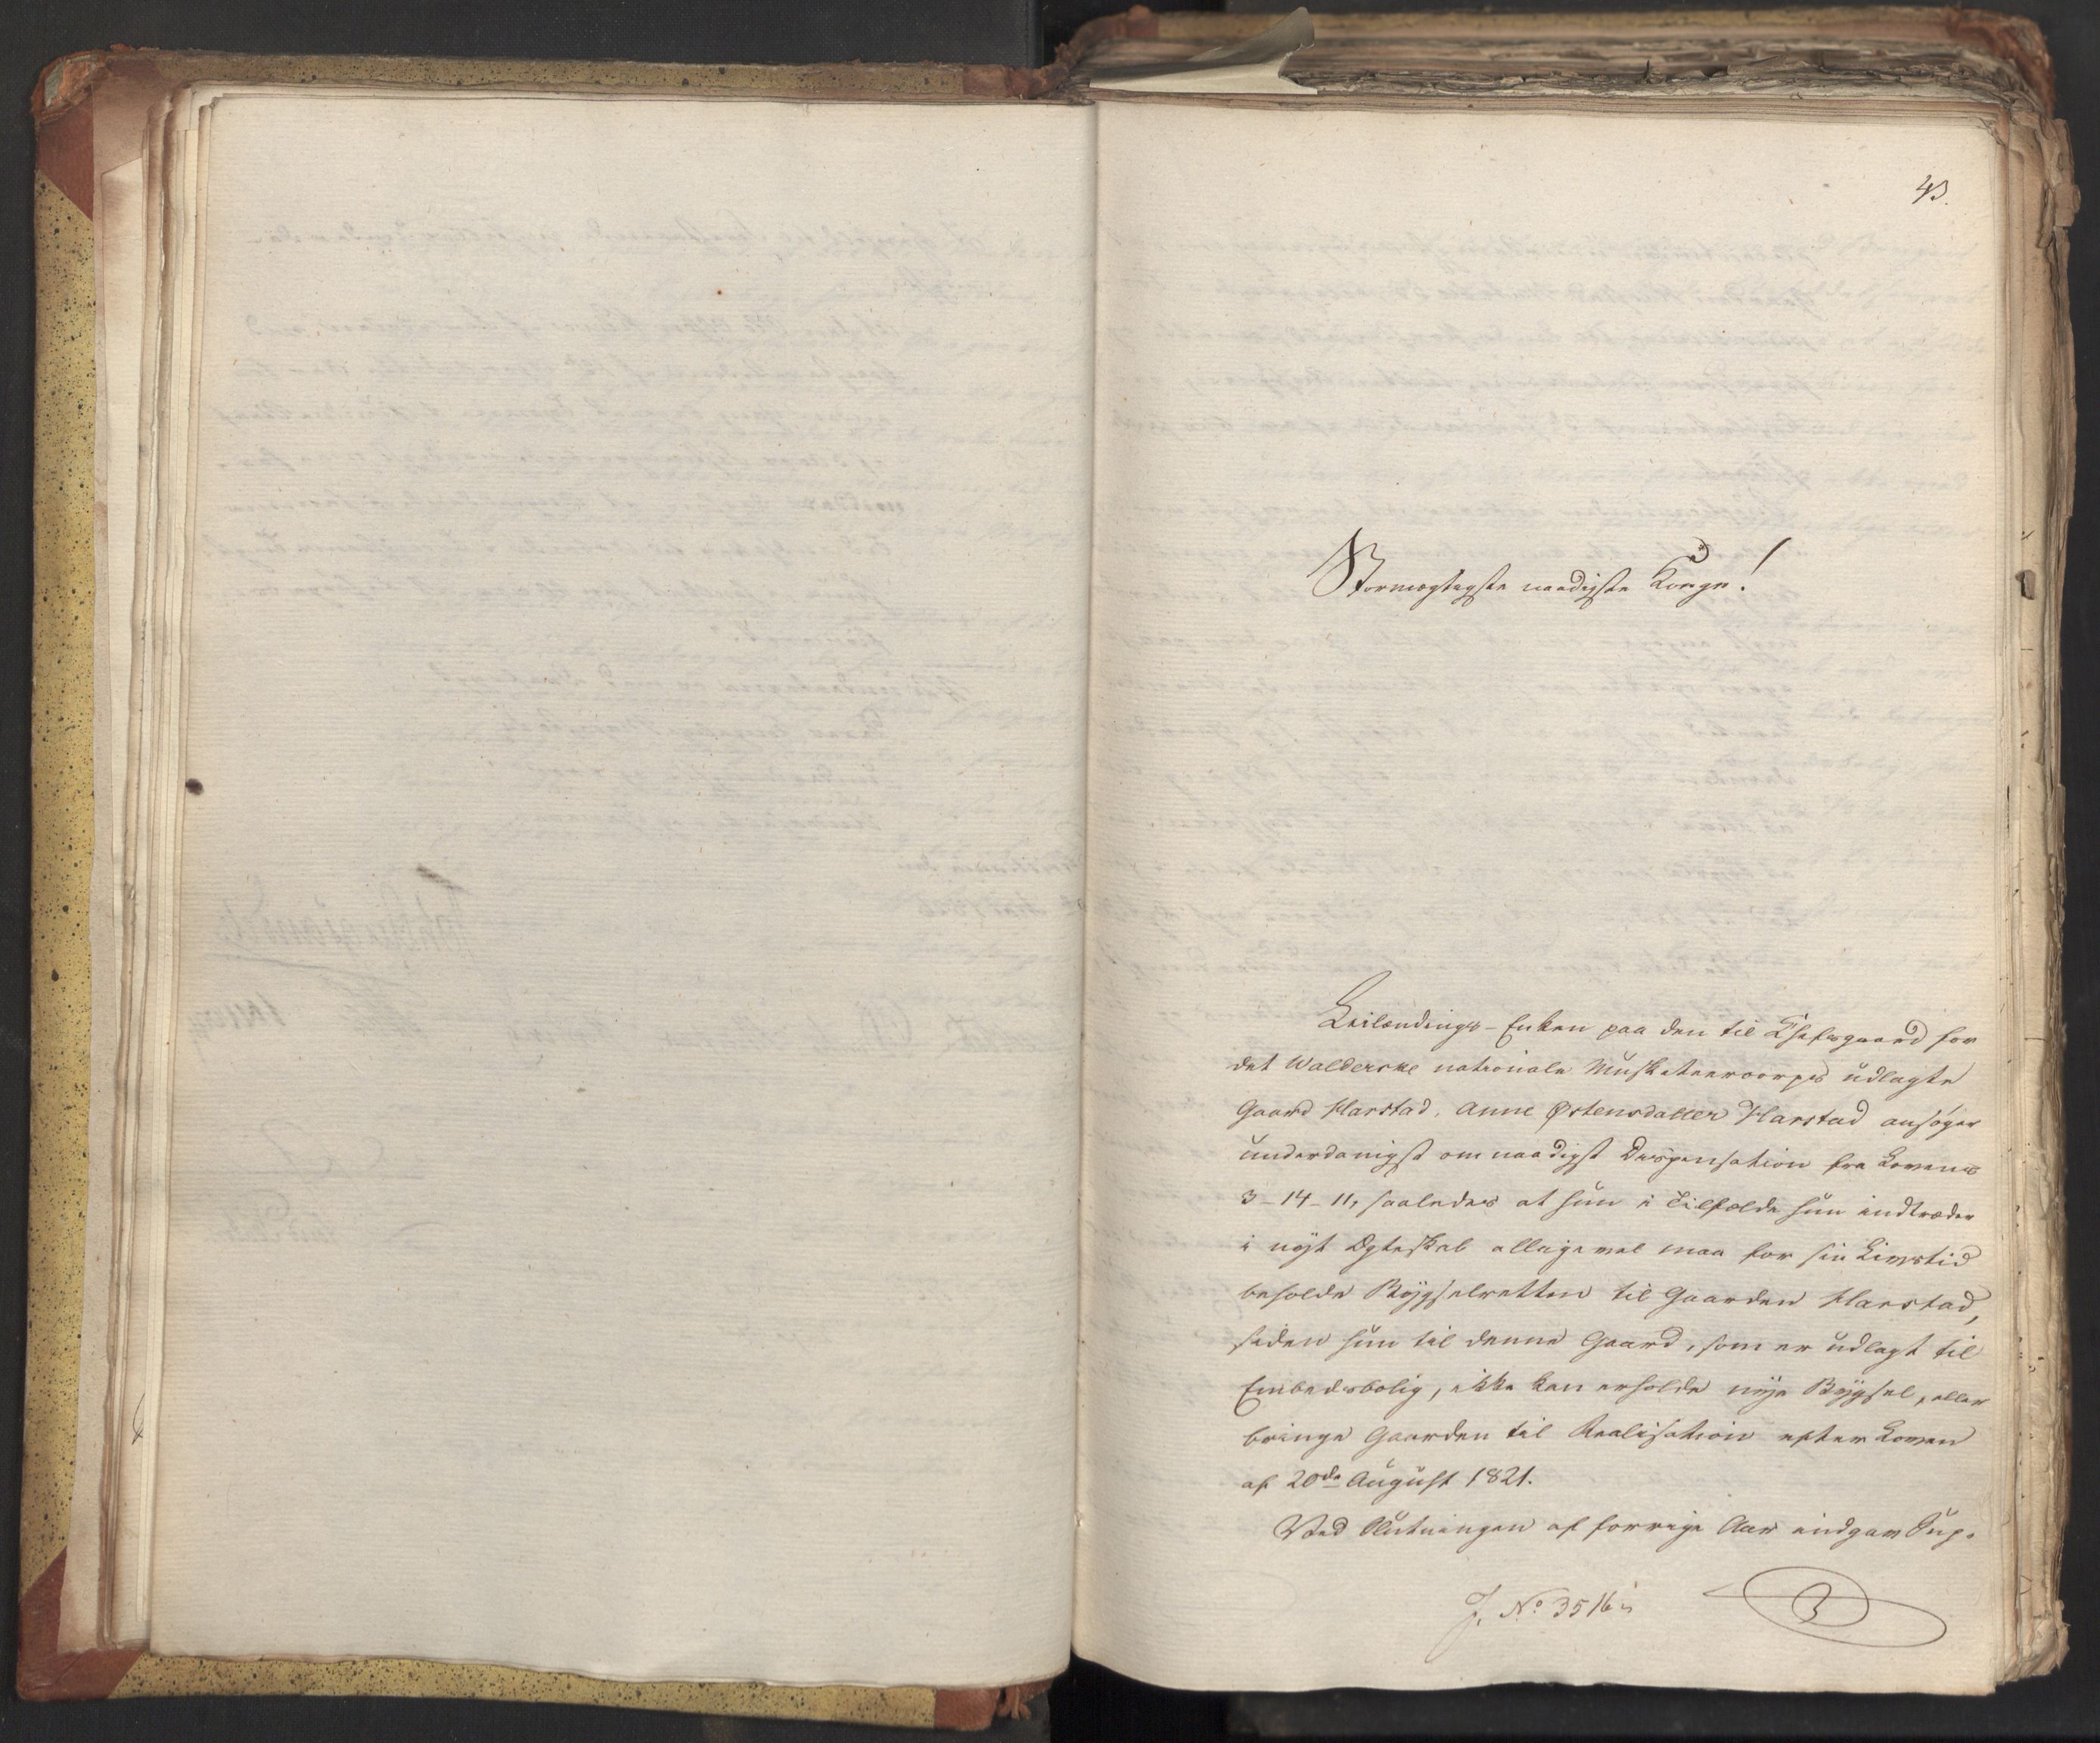 43.
Stormægtigste naadigste Konge!
Leilændings-Enken paa den til Chefsgaard for
det Walderske nationale Musketeercorps udlagte
Gaard Harstad, Anne Østensdatter Harstad ansøger
underdanigst om naadigst Dispensation fra Lovens
3-14-11, saaledes at hun i Tilfælde hun indtræder
i nyt Ægteskab alligevel maa for sin Livstid
beholde Bygselretten til Gaarden Harstad,
siden hun til denne Gaard, som er udlagt til
Embedsbolig, ikke kan erholde nye Bygsel, eller
bringe Gaarden til Realisation efter Loven
af 20de August 1821.
Ved Slutningen af forrige Aar indgav Sup-
J. No 3516